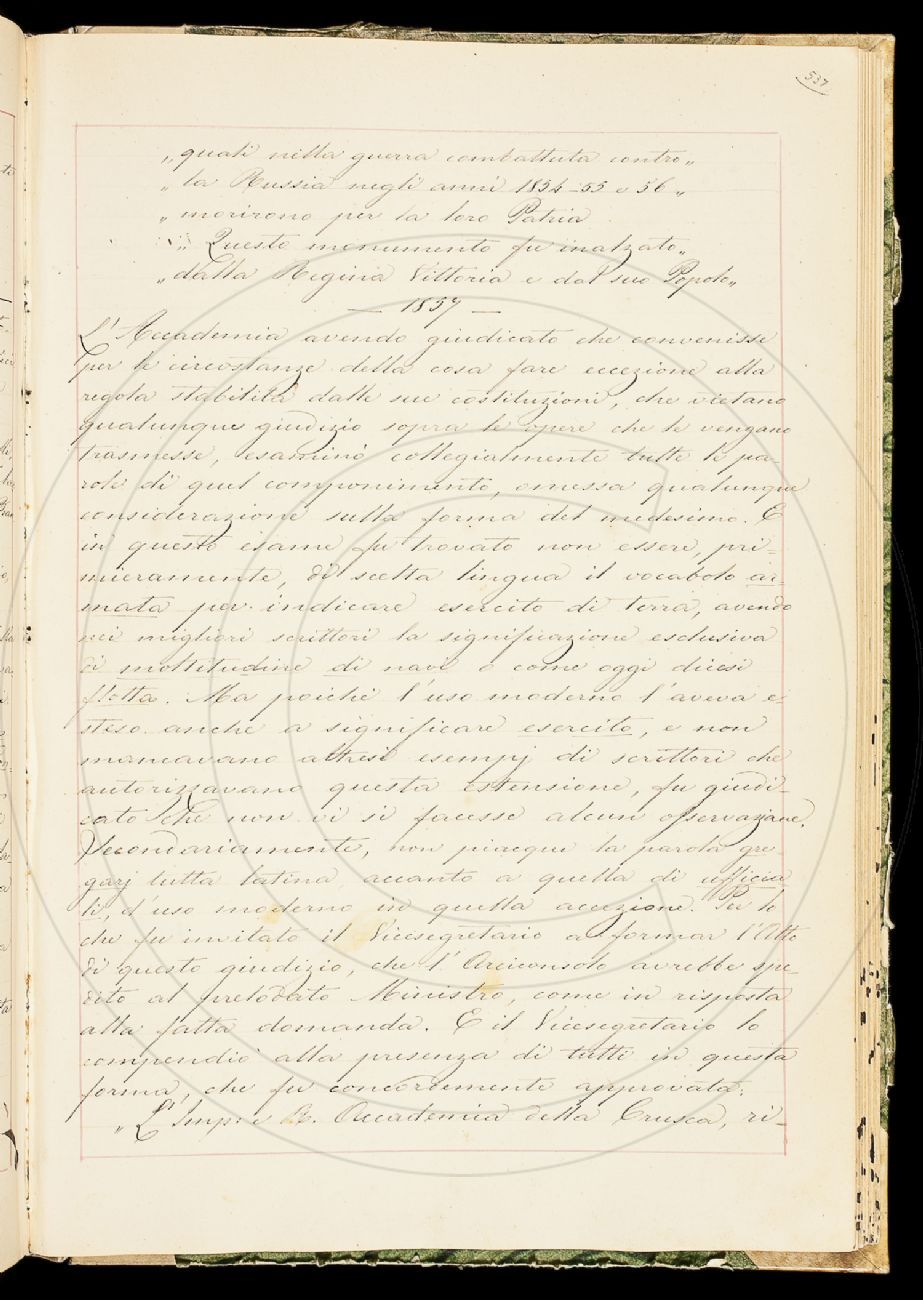 537
„ quali nella guerra combattuta contro „
„ la Russia negli anni 1854-55 e 56 „
„ morirono per la loro Patria
„ Questo monumento fu inalzato „
„ dalla Regina Vittoria e dal suo Popolo „
— 1857 —
L'Accademia avendo giudicato che convenisse
per le circostanze della cosa fare eccezione alla
regola stabilita dalle sue costituzioni, che vietano
qualunque giudizio sopra le opere che le vengano
trasmesse, esaminò collegialmente tutte le pa-
role di quel componimento, omessa qualunque
considerazione sulla forma del medesimo. E
in questo esame fu trovato non essere, pri=
mieramente, di scelta lingua il vocabolo ar-
mata per indicare esercito di terra, avendo
nei migliori scrittori la significazione esclusiva
di moltitudine di navi o come oggi dicesi
flotta. Ma poichè l'uso moderno l'aveva e-
steso anche a significare esercito, e non
mancavano altresì esempj di scrittori che
autorizzavano questa estensione, fu giudi-
cato che non vi si facesse alcun osservazione.
Secondariamente, non piacque la parola gre
garj tutta latina accanto a quella di ufficia
li, d'uso moderno in quella accezione. Per lo
che fu invitato il Vicesegretario a formar l'Atto
di questo giudizio, che l'Arciconsolo avrebbe spe-
dito al prelodato Ministro, come in risposta
alla fatta domanda. E il Vicesegretario lo
compendiò alla presenza di tutti in questa
forma, che fu concordemente approvata:
„ L'Imp: e R. Accademia della Crusca, ri-